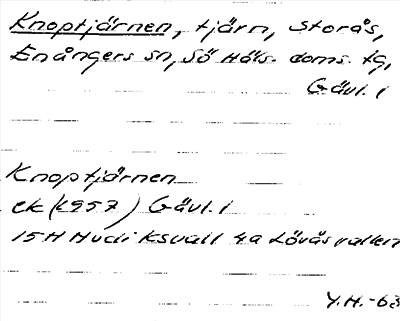 Knoptjärnen, tjärn, Storås,
Enångers sn, Sö Häls. doms. tg,
Gävl. l
Knoptjärnen
ek (1957) Gävl. l
15H Hudiksvall 4a Lövåsvallen
Y.H.-63